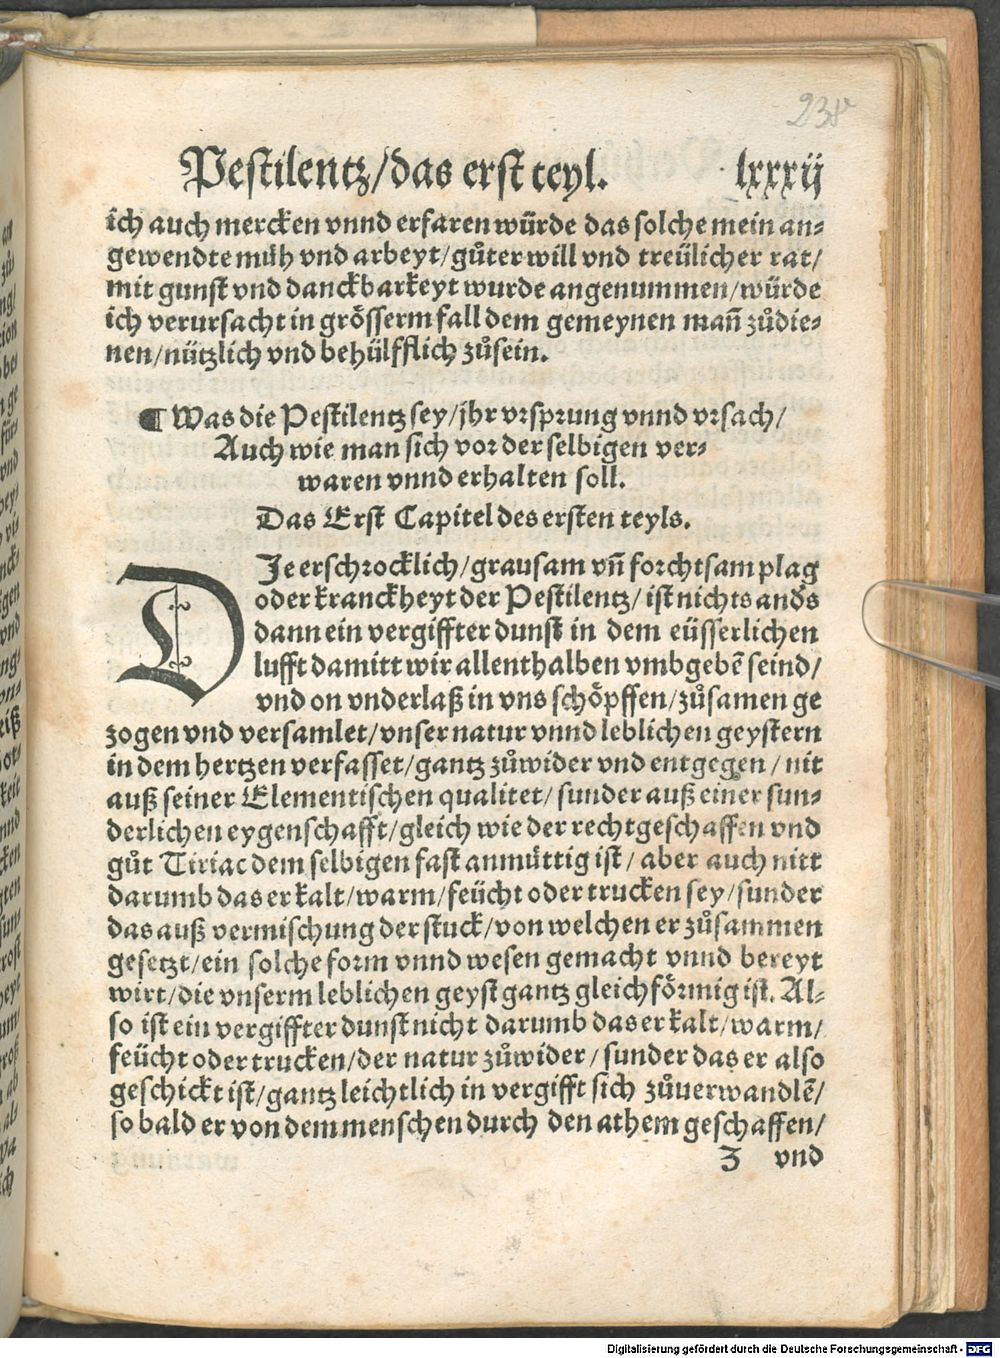 238
Pestilentz/das erst teyl. lxxxij
ich auch mercken vnnd erfaren würde das solche mein an⸗
gewendte müh vnd arbeyt/gůter will vnd treülicher rat/
mit gunst vnd danckbarkeyt wurde angenummen/würde
ich verursacht in grösserm fall dem gemeynen mañ zůdie⸗
nen/nützlich vnd behülfflich zůsein.
¶ Was die Pestilentz sey/jhr vrsprung vnnd vrsach/
Auch wie man sich vor derselbigen ver⸗
waren vnnd erhalten soll.
Das Erst Capitel des ersten teyls.
DJe erschrocklich/grausam vñ forchtsam plag
oder kranckheyt der Pestilentz/ist nichts anđs
dann ein vergiffter dunst in dem eüsserlichen
lufft damitt wir allenthalben vmbgebẽ seind/
vnd on vnderlaß in vns schöpffen/zůsamen ge
zogen vnd versamlet/vnser natur vnnd leblichen geystern
in dem hertzen verfasset/gantz zůwider vnd entgegen/nit
auß seiner Elementischen qualitet/sunder auß einer sun⸗
derlichen eygenschafft/gleich wie der rechtgeschaffen vnd
gůt Tiriac dem selbigen fast anmüttig ist/aber auch nitt
darumb das er kalt/warm/feücht oder trucken sey/sunder
das auß vermischung der stuck/von welchen er zůsammen
gesetzt/ein solche form vnnd wesen gemacht vnnd bereyt
wirt/die vnserm leblichen geyst gantz gleichförmig ist. Al⸗
so ist ein vergiffter dunst nicht darumb das er kalt/warm/
feücht oder trucken/der natur zůwider/sunder das er also
geschickt ist/gantz leichtlich in vergifft sich zůuerwandlẽ/
so bald er von dem menschen durch den athem geschaffen/
Z vnd
Digitalisierung gefördert durch die Deutsche Forschungsgemeinschaft - DFG